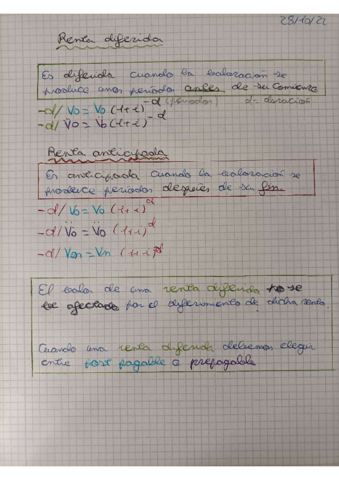 28/10/22
Renta diferida
Es diferida cuando la valoración se
produce unos periodos antes de su comienzo
-d/Vo = Vo (1+i)^-d (periodos) d = duración
-d/V̈o = V̈o (1+i)^-d
Renta anticipada
Es anticipada cuando la valoración se
produce periodos después de su fin
-d/Vo = Vo (1+i)^d
-d/V̈o = V̈o (1+i)^d
-d/Vn = Vn (1+i)^d
El valor de una renta diferida no se
ve afectado por el diferimiento de dicha renta.
Cuando una renta diferida debemos elegir
entre post pagable o prepagable